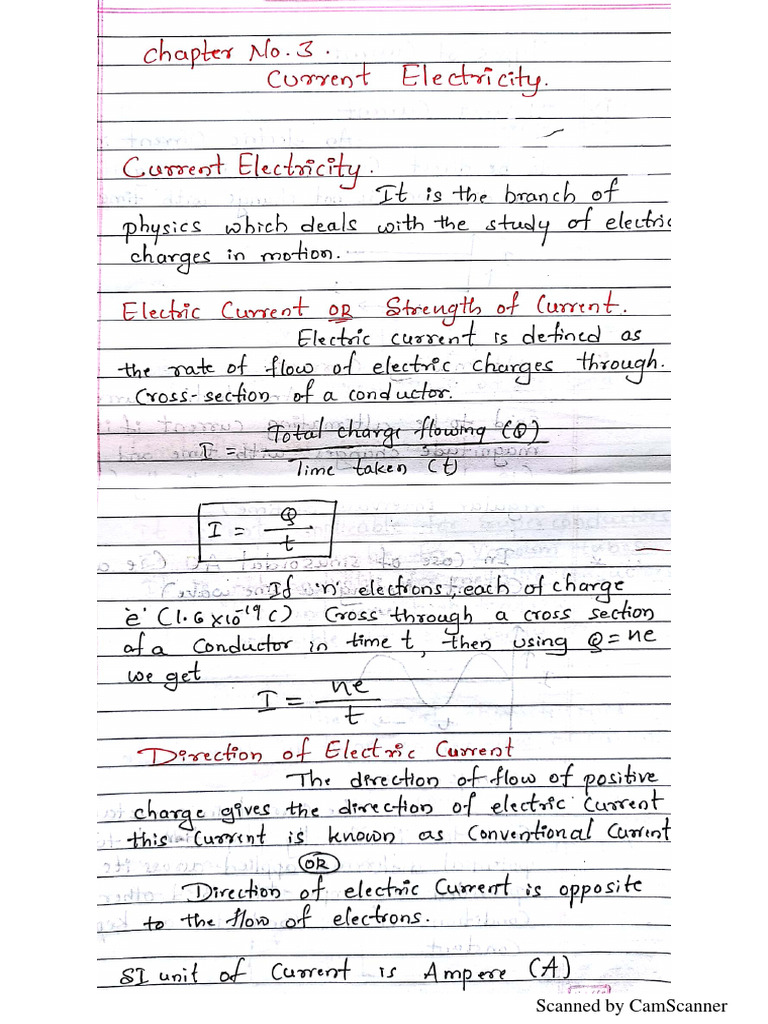 Chapter No. 3.
Current Electricity.
Current Electricity.
It is the branch of
physics which deals with the study of electric
charges in motion.
Electric Current OR Strength of Current.
Electric current is defined as
the rate of flow of electric charges through.
Cross-section of a conductor.
I = Total charge flowing (Q) / Time taken (t)
I = Q / t
If 'n' electrons, each of charge
'e' (1.6×10⁻¹⁹ C) Cross through a cross section
of a Conductor in time t, then using Q = ne
we get
I = ne / t
Direction of Electric Current
The direction of flow of positive
charge gives the direction of electric Current
this Current is known as Conventional Current
OR
Direction of electric Current is opposite
to the flow of electrons.
SI unit of Current is Ampere (A)
Scanned by CamScanner